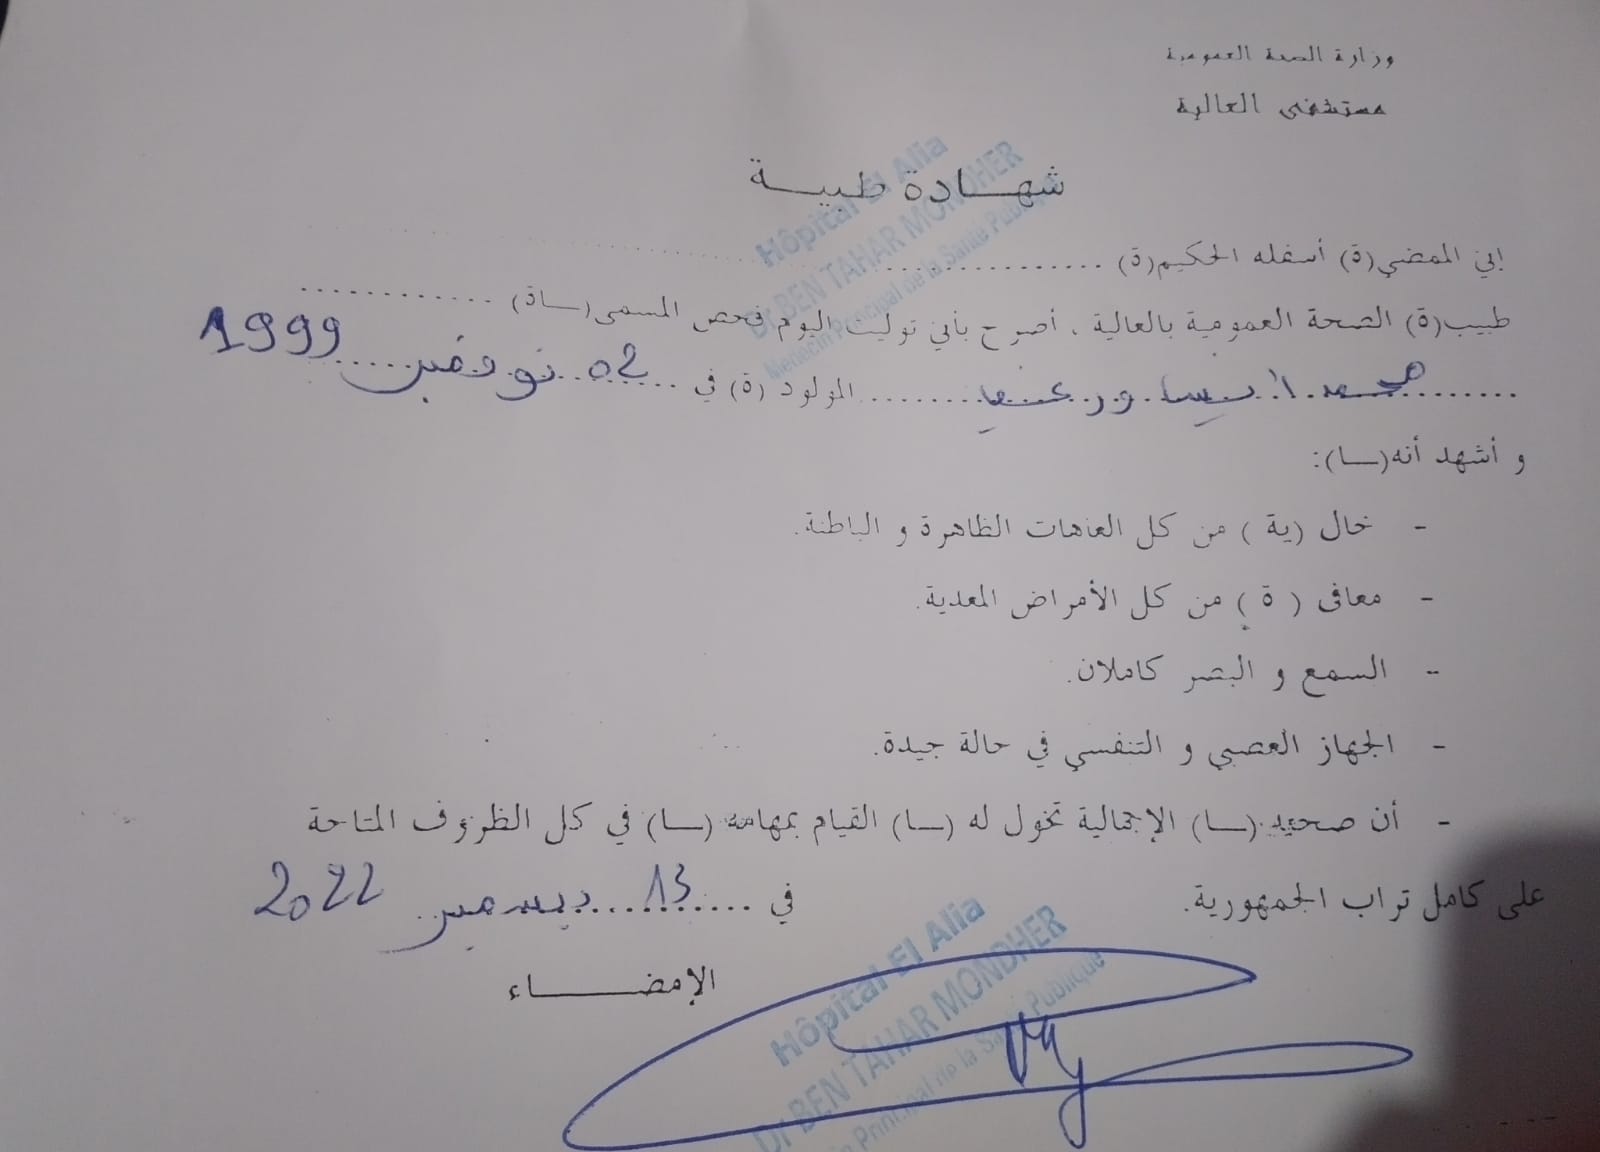 وزارة الصحة العمومية
مستشفى العالية
شهادة طبية
Hôpital El Alia
Dr BEN TAHAR MONDHER
Médecin Principal de la Santé Publique
إني الممضي(ة) أسفله الحكيم(ة) ....................
طبيب(ة) الصحة العمومية بالعالية ، أصرح بأني توليت اليوم فحص المسمى(ـاة) ............
محمد ... المولود (ة) في 02 نوفمبر 1999
و أشهد أنه(ـا):
- خال (ية ) من كل العاهات الظاهرة و الباطنة.
- معافى ( ة ) من كل الأمراض المعدية.
- السمع و البصر كاملان.
- الجهاز العصبي و التنفسي في حالة جيدة.
- أن صحته (ـا) الإجمالية تخول له (ـا) القيام بمهامه (ـا) في كل الظروف المتاحة
على كامل تراب الجمهورية.
في 13 ديسمبر 2022
الإمضـــاء
Hôpital El Alia
Dr BEN TAHAR MONDHER
Médecin Principal de la Santé Publique